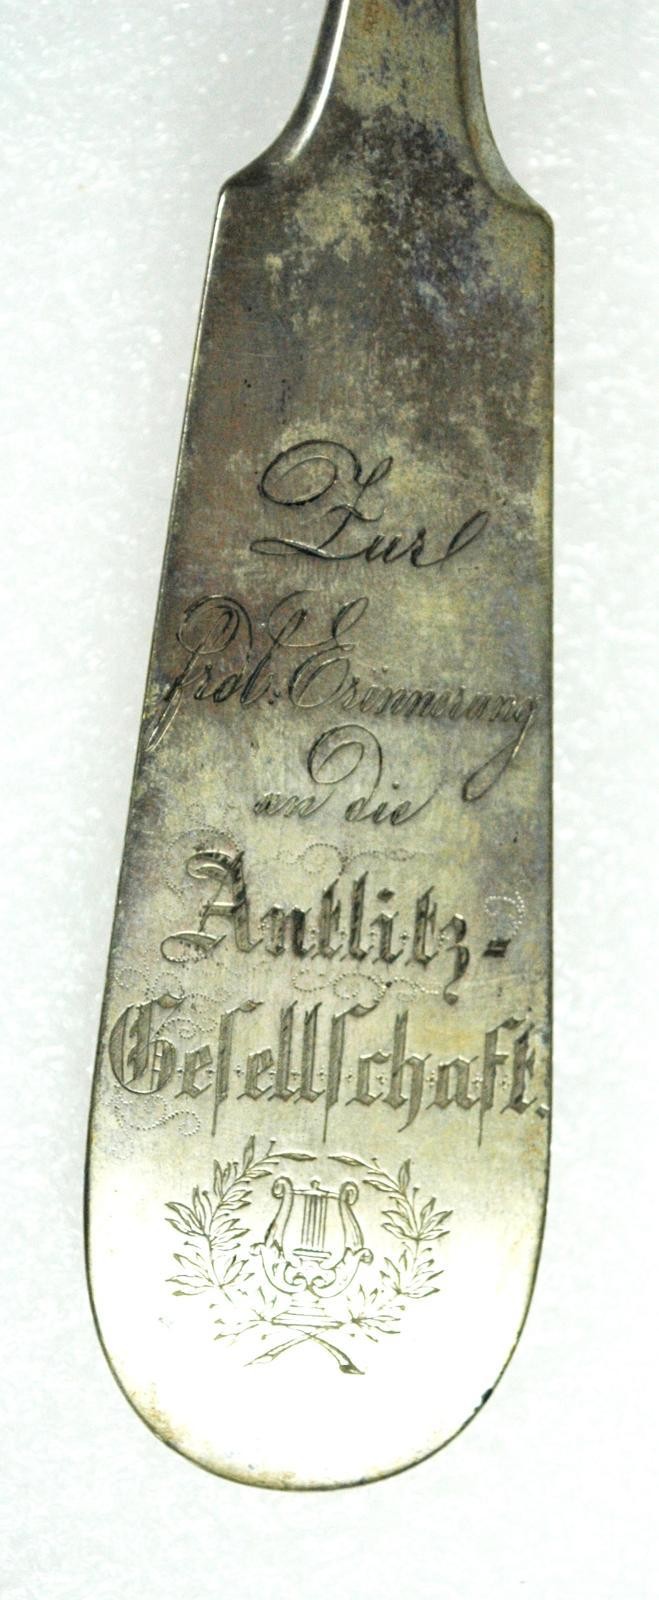 Zur
frdl. Erinnerung
an die
Antlitz-
Gesellschaft.